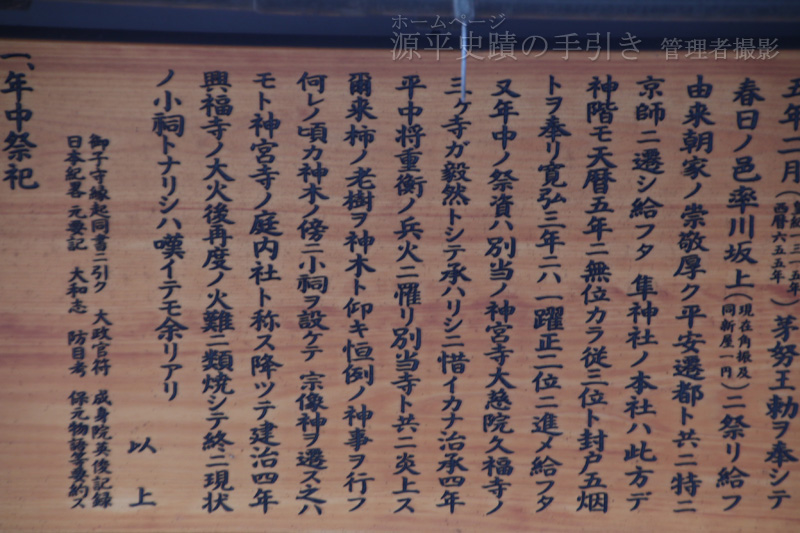 ホームページ
源平史蹟の手引き 管理者撮影
五年二月(皇紀一三一五年 西暦六五五年)茅努王勅ヲ奉シテ
春日ノ邑率川坂上(現在角振及 同新屋一円)ニ祭リ給フ
由来朝家ノ崇敬厚ク平安遷都ト共ニ特ニ
京師ニ遷シ給フタ 隼神社ノ本社ハ此方デ
神階モ天暦五年ニ無位カラ従三位ト封戸五烟
トヲ奉リ寛弘三年ニハ一躍正二位ニ進メ給フタ
又年中ノ祭資ハ別当ノ神宮寺大慈院久福寺ノ
三ヶ寺ガ毅然トシテ承ハリシニ惜イカナ治承四年
平中将重衡ノ兵火ニ罹リ別当寺ト共ニ炎上ス
爾来柿ノ老樹ヲ神木ト仰キ恒例ノ神事ヲ行フ
何レノ頃カ神木ノ傍ニ小祠ヲ設ケテ 宗像神ヲ遷ス之ハ
モト神宮寺ノ庭内社ト称ス降ツテ建治四年
興福寺ノ大火後再度ノ火難ニ類焼シテ終ニ現状
ノ小祠トナリシハ嘆イテモ余リアリ
以上
御子守縁起同書ニ引ク 大政官符 成身院英俊記録
日本紀畧 元要記 大和志 防目考 保元物語等要約ス
一、年中祭祀